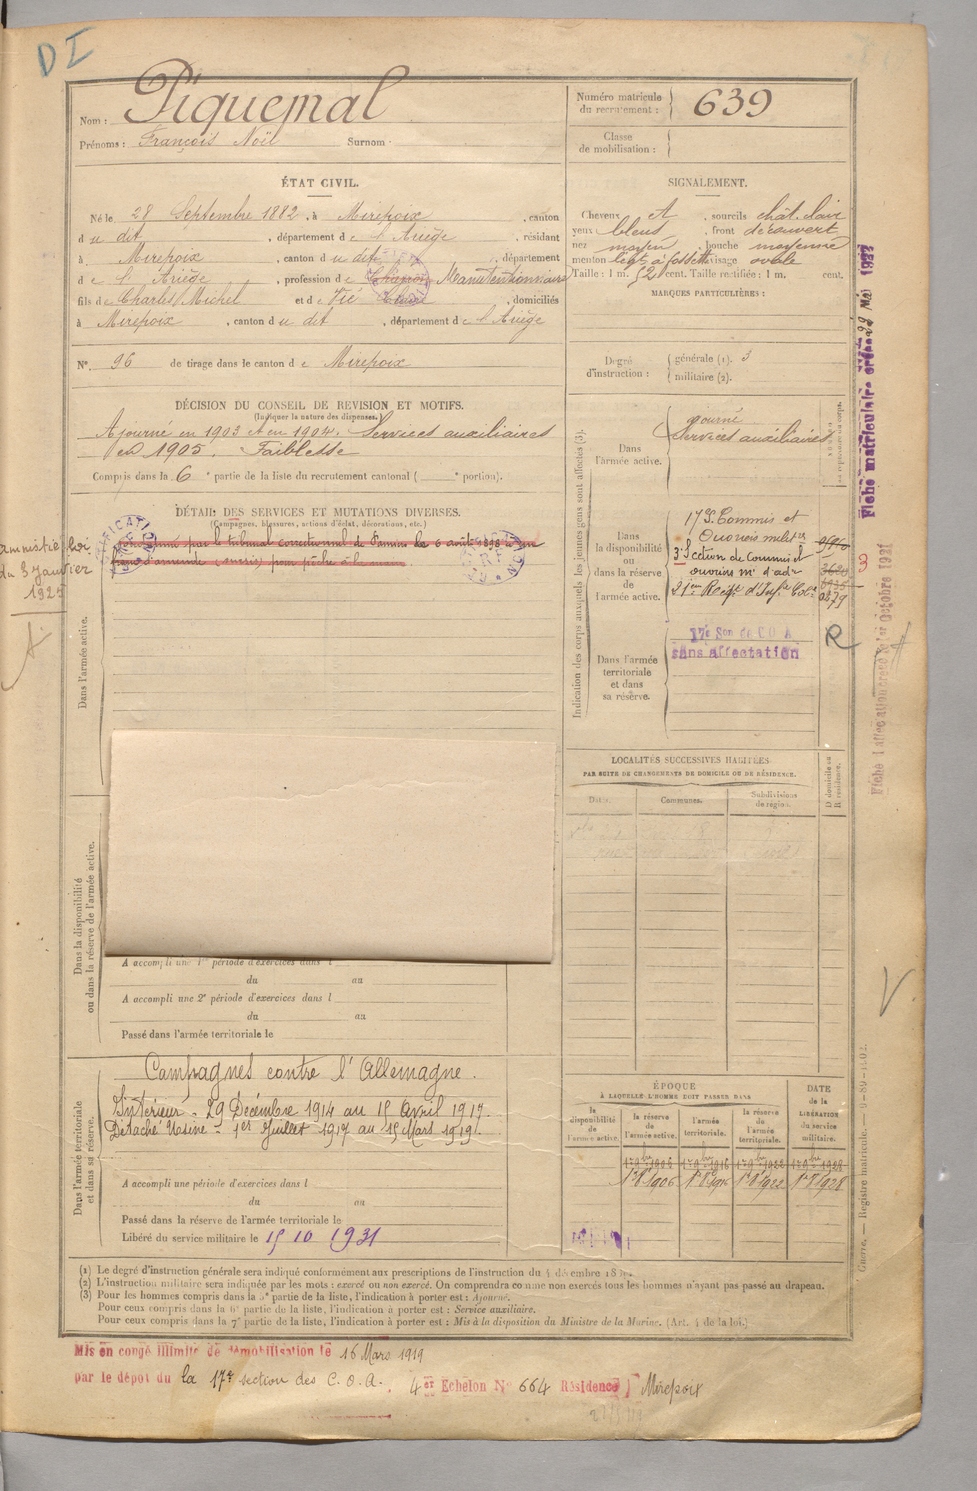 D I
Nom : Piquemal
Prénoms : François Noël Surnom :
Numéro matricule du recrutement : 639
Classe de mobilisation :
ÉTAT CIVIL.
Né le 28 Septembre 1882, à Mirepoix, canton
du dit, département de l'Ariège, résidant
à Mirepoix, canton du dit, département
de l'Ariège, profession de Manutentionnaire
fils de Charles Michel et de Vié, domiciliés
à Mirepoix, canton du dit, département de l'Ariège
N° 96 de tirage dans le canton de Mirepoix
SIGNALEMENT.
Cheveux et, sourcils chât. clair
yeux bleus, front découvert
nez moyen, bouche moyenne
menton légt à fossette visage ovale
Taille : 1 m. 52 cent. Taille rectifiée : 1 m. cent.
MARQUES PARTICULIÈRES :
Degré d'instruction : générale (1). 3
militaire (2).
DÉCISION DU CONSEIL DE REVISION ET MOTIFS.
(Indiquer la nature des dispenses.)
Ajourné en 1903 et en 1904. Services auxiliaires
en 1905. Faiblesse
Compris dans la 6e partie de la liste du recrutement cantonal ( e portion).
DÉTAIL DES SERVICES ET MUTATIONS DIVERSES.
(Campagnes, blessures, actions d'éclat, décorations, etc.)
par le tribunal correctionnel de Pamiers le 6 août 1898 à un
franc d'amende (sursis) pour pêche à la main
Amnistié Loi
du 3 Janvier
1925
Dans l'armée active.
Dans la disponibilité
ou dans la réserve de l'armée active.
A accompli une 1re période d'exercices dans l
du au
A accompli une 2e période d'exercices dans l
du au
Passé dans l'armée territoriale le
Dans l'armée territoriale
et dans sa réserve.
Campagnes contre l'Allemagne.
Intérieur - 29 Décembre 1914 au 15 Avril 1917.
Détaché Usine - 1er Juillet 1917 au 15 Mars 1919.
A accompli une période d'exercices dans l
du au
Passé dans la réserve de l'armée territoriale le
Libéré du service militaire le 15 10 1931
Indication des corps auxquels les jeunes gens sont affectés (3).
Dans l'armée active.
ajourné
Services auxiliaires
Dans la disponibilité ou dans la réserve de l'armée active.
17e S. Commis et
Ouvriers milit.rs
3e Section de Commis et
ouvriers m. d'adn
21em Regt. d'Inf.ie Col.e
0279
Dans l'armée territoriale et dans sa réserve.
17e Son de C.O.A.
sans affectation
R
LOCALITÉS SUCCESSIVES HABITÉES
PAR SUITE DE CHANGEMENTS DE DOMICILE OU DE RÉSIDENCE.
Dates. Communes. Subdivisions de région. D domicile ou R résidence.
ÉPOQUE
À LAQUELLE L'HOMME DOIT PASSER DANS
la disponibilité de l'armée active. la réserve de l'armée active. l'armée territoriale. la réserve de l'armée territoriale. DATE de la LIBÉRATION du service militaire.
1er 9bre 1906 1er 9bre 1916 1er 9bre 1922 1er 9bre 1928
Fiche matriculaire
Fiche d'affectation créée le 1er Octobre 1921
V
Guerre. — Registre matricule.
(1) Le degré d'instruction générale sera indiqué conformément aux prescriptions de l'instruction du 4 décembre
(2) L'instruction militaire sera indiquée par les mots : exercé ou non exercé. On comprendra comme non exercés tous les hommes n'ayant pas passé au drapeau.
(3) Pour les hommes compris dans la 5e partie de la liste, l'indication à porter est : Ajourné.
Pour ceux compris dans la 6e partie de la liste, l'indication à porter est : Service auxiliaire.
Pour ceux compris dans la 7e partie de la liste, l'indication à porter est : Mis à la disposition du Ministre de la Marine. (Art. 4 de la loi.)
Mis en congé illimité de démobilisation le 16 Mars 1919
par le dépot du la 17e section des C.O.A. 4er Echelon N° 664 Résidence Mirepoix